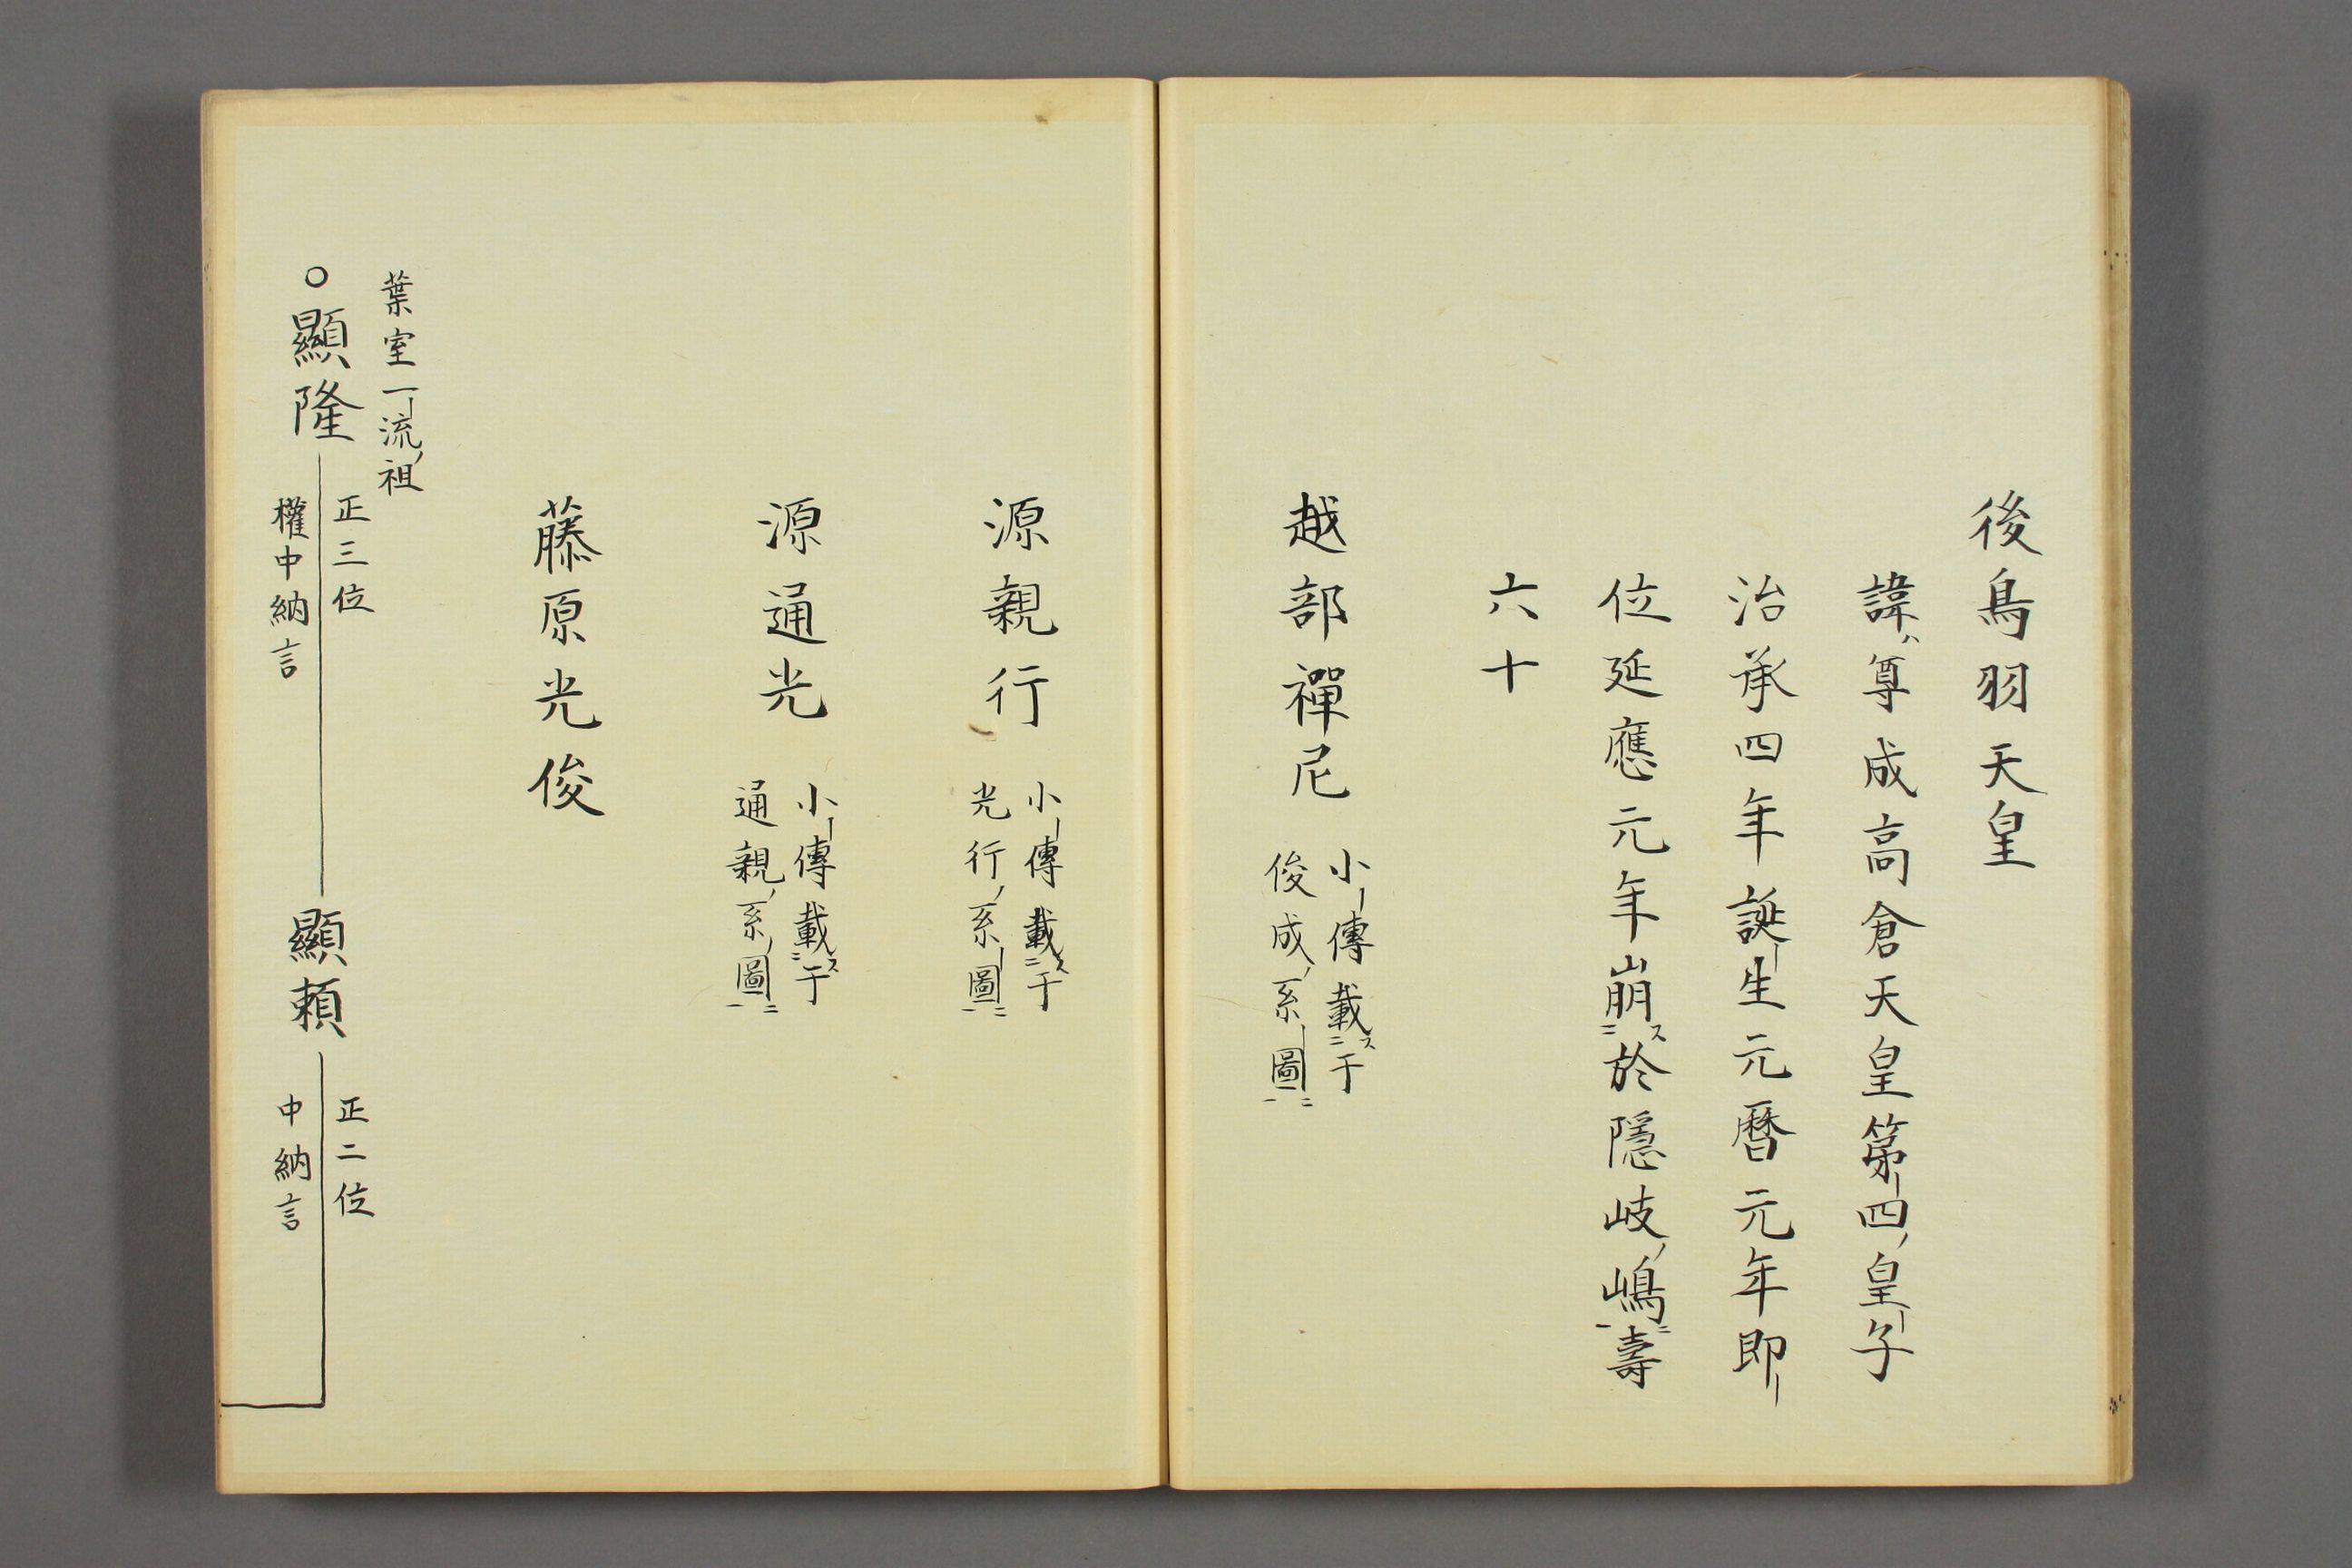 後鳥羽天皇
諱ハ尊成高倉天皇第四ノ皇子
治承四年誕生元暦元年即
位延應元年崩ス二於隱岐ノ嶋一ニ壽
六十
越部禪尼
小傳載ス二于
俊成ノ系圖一ニ
源親行
小傳載ス二于
光行ノ系圖一ニ
源通光
小傳載ス二于
通親ノ系ノ圖一ニ
藤原光俊
葉室一流ノ祖
○顯隆
正三位
權中納言
顯頼
正二位
中納言